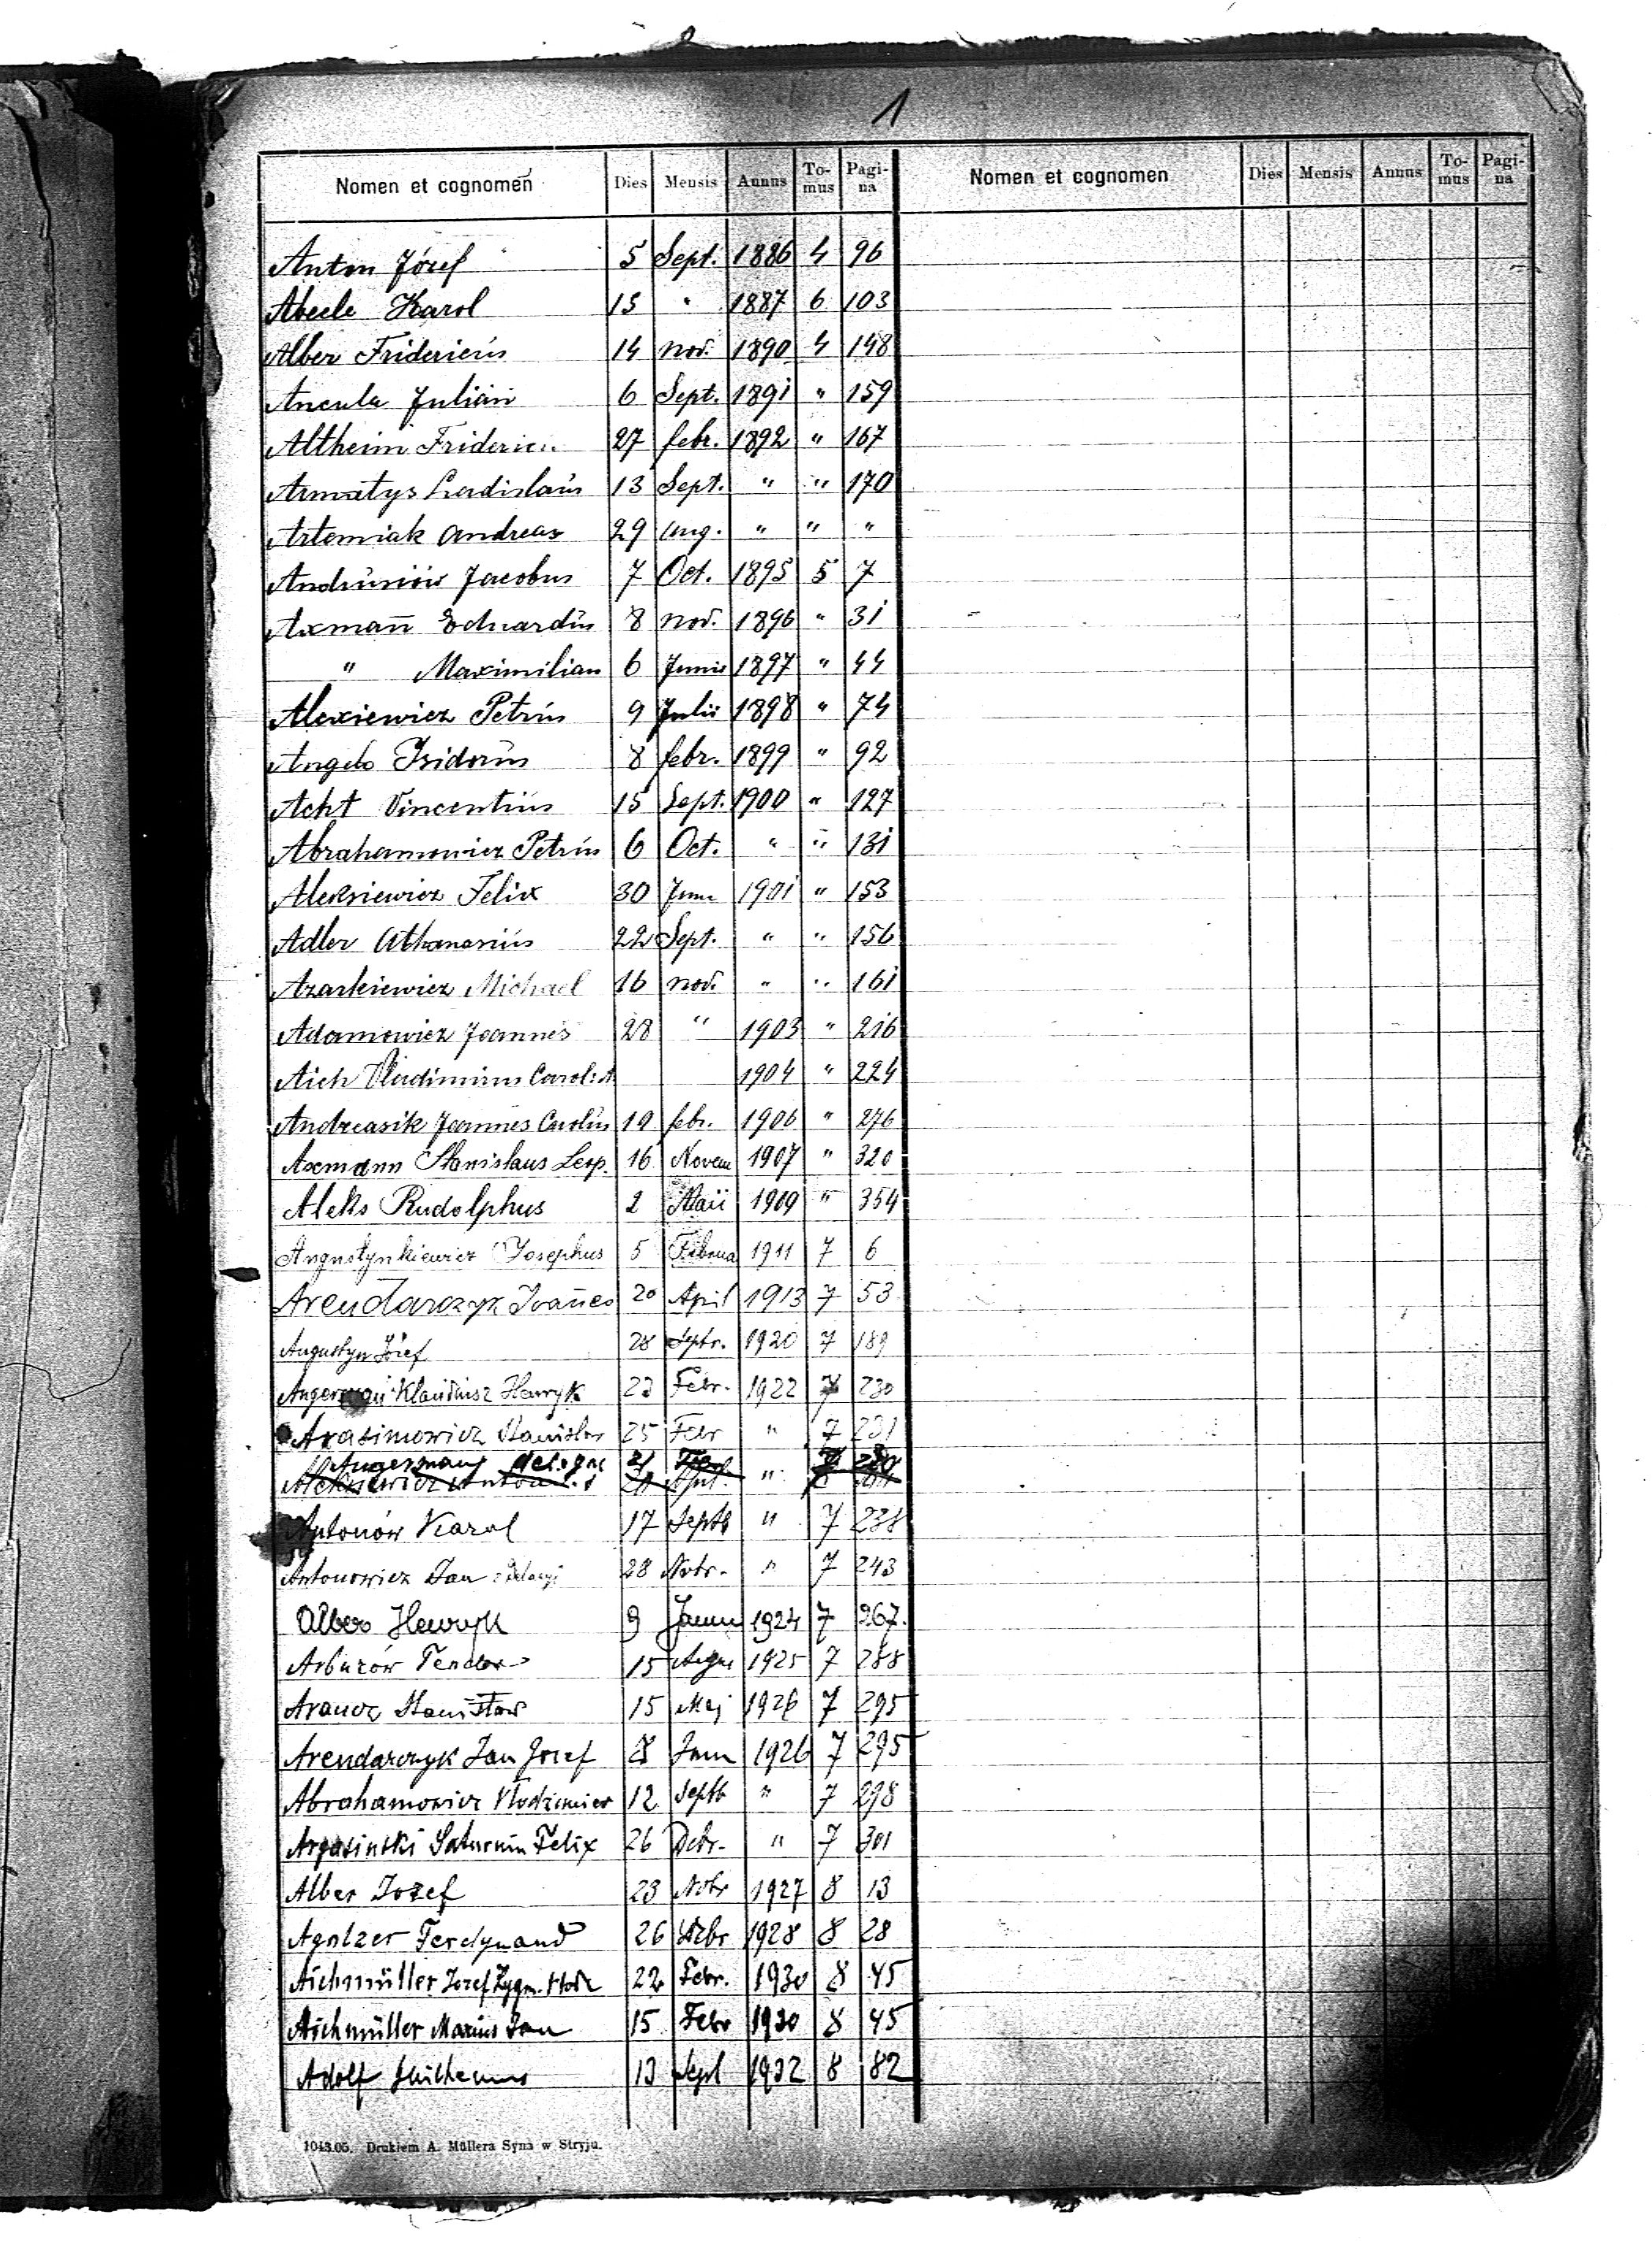 1
Nomen et cognomen Dies Mensis Annus To-mus Pagi-na Nomen et cognomen Dies Mensis Annus To-mus Pagi-na
Anton Józef 5 Sept. 1886 4 96
Abeele Karol 15 " 1887 6 103
Alber Fridericus 14 nov. 1890 4 148
Ancula Julian 6 Sept. 1891 " 159
Altheim Frideric 27 febr. 1892 " 167
Armatys Ladislaus 13 Sept. " " 170
Artemiak Andreas 29 Aug. " " "
Andrusiów Jacobus 7 Oct. 1895 5 7
Axmañ Eduardus 8 nov. 1896 " 31
" Maximilian 6 Junii 1897 " 44
Alexiewicz Petrus 9 Julii 1898 " 74
Angelo Isidorus 8 febr. 1899 " 92
Acht Vincentius 15 Sept. 1900 " 127
Abrahamowicz Petrus 6 Oct. " " 131
Aleksiewicz Felix 30 Juni 1901 " 153
Adler Athanasius 22 Sept. " " 156
Azarkiewicz Michael 16 nov. " " 161
Adamowicz Joannes 28 " 1903 " 216
Aich Vladimirus Carol. A 1904 " 224
Andreasik Joannes Carolus 19 febr. 1906 " 276
Axmann Stanislaus Leop. 16 Novem 1907 " 320
Aleks Rudolphus 2 Maii 1909 " 354
Augustynkiewicz Josephus 5 Februa 1911 7 6
Arendarczyk Ioañes 20 April 1913 7 53
Augustyn Józef 28 Septr. 1920 7 189
Angerman Klaudiusz Henryk 22 Febr. 1922 7 230
Arasimowicz Stanislav 25 Febr " 7 231
Angerman 21 Feb
Aleksiewicz Antoni "
Antonów Karol 17 Septb " 7 238
Antonowicz Jan 28 Nobr. " 7 243
Albers Henryk 9 Janu 1924 7 267.
Arburów Teodor 15 Augu 1925 7 288
Arancz Stanisław 15 Maj 1926 7 295
Arendarczyk Jan Józef 28 Jun 1926 7 295
Abrahamowicz Włodzimier 12 Septb " 7 298
Argasinski Saturnin Felix 26 Debr. " 7 301
Alber Józef 23 Nobr 1927 8 13
Agolzer Ferdynand 26 1928 8 28
Aichmüller Jozef Zygm. 22 Febr. 1930 8 45
Aichmüller Marius Jan 15 Febr 1930 8 45
Adolf 13 Sept 1932 8 82
1043.05. Drukiem A. Müllera Syna w Stryju.